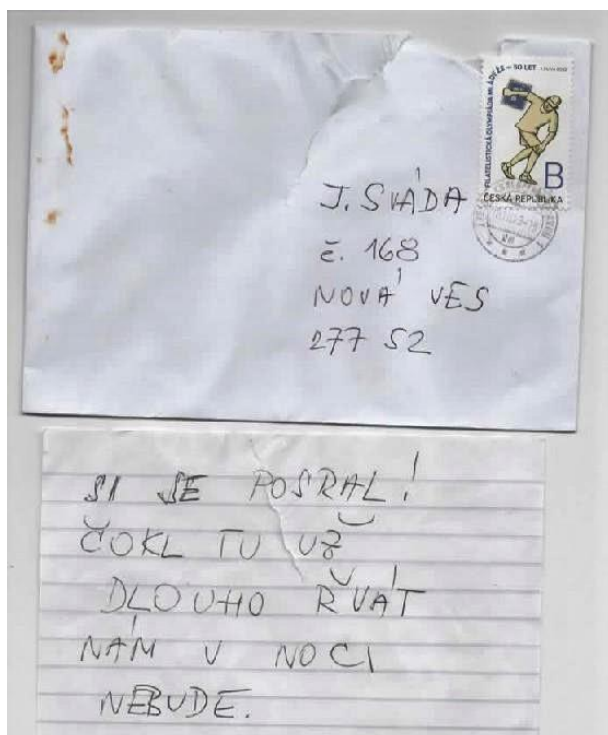 FILATELISTICKÁ OLYMPIÁDA MLÁDEŽE – 50 LET
B
ČESKÁ REPUBLIKA
J. SVÁDA
č. 168
NOVÁ VES
277 52
SI SE POSRAL!
ČOKL TU UŽ
DLOUHO ŘVÁT
NÁM V NOCI
NEBUDE.